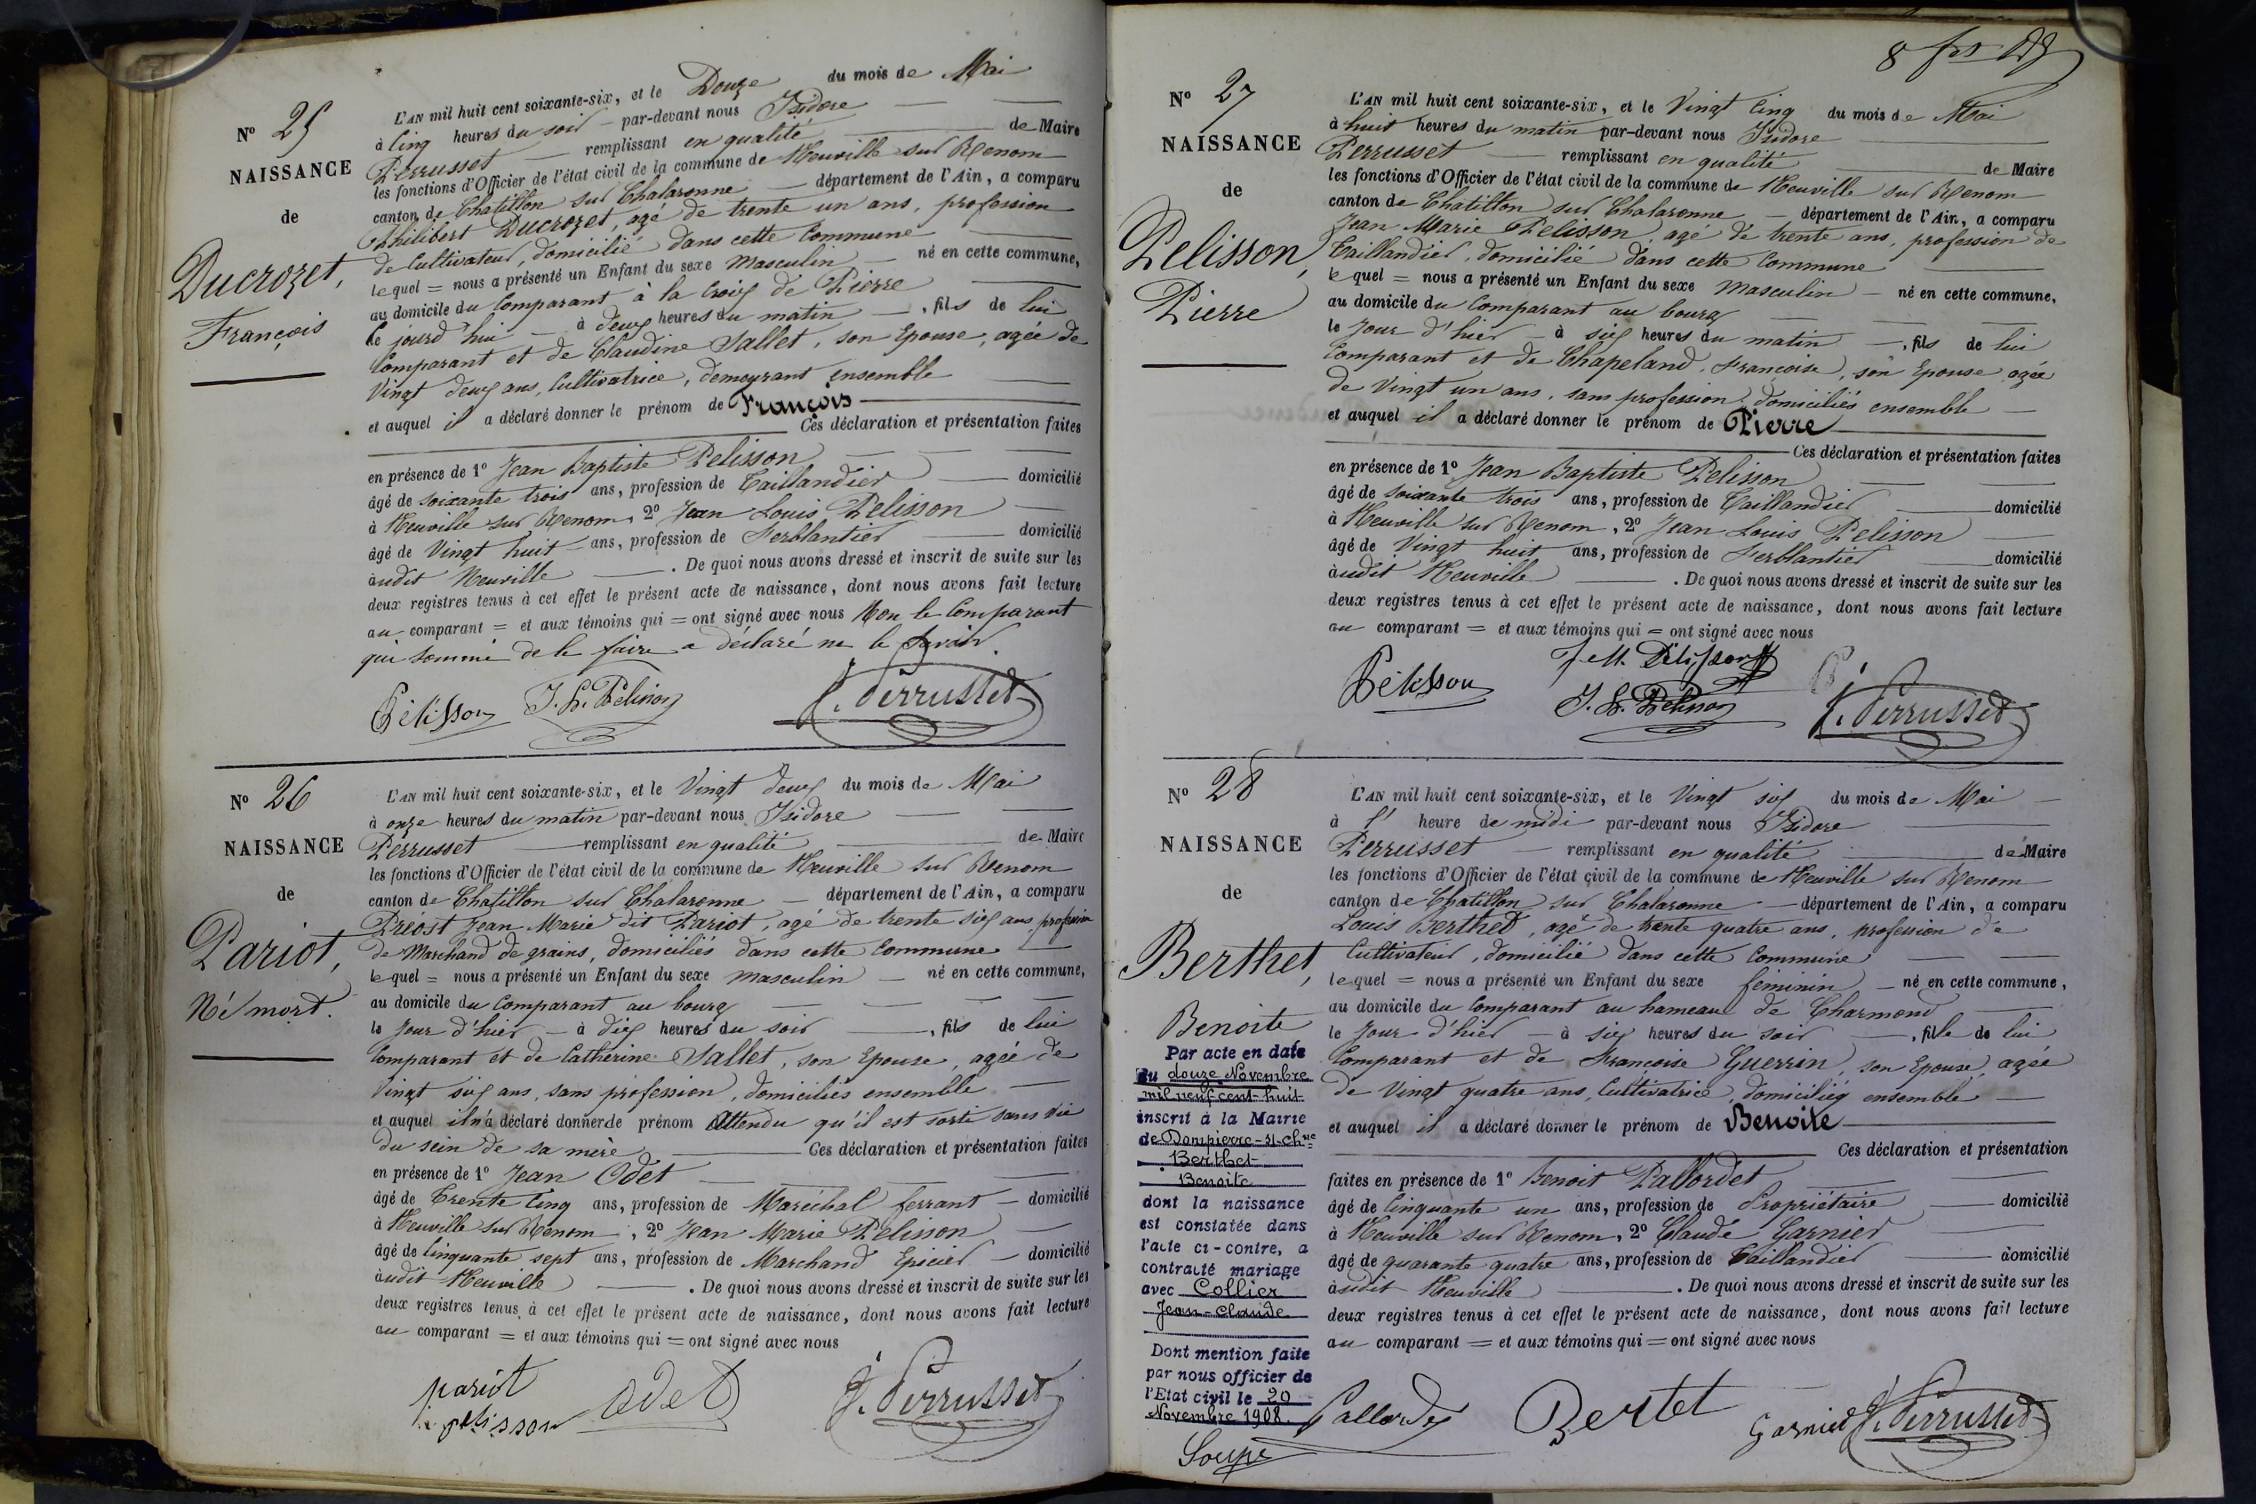 N° 25
NAISSANCE
de
Ducrozet,
François
L'AN mil huit cent soixante-six, et le Douze du mois de Mai
à Cinq heures du soir par-devant nous Isidore
Perrusset remplissant en qualité de Maire
les fonctions d'Officier de l'état civil de la commune de Neuville sur Renom
canton de Chatillon sur Chalaronne département de l'Ain, a comparu
Philibert Ducrozet, agé de trente un ans, profession
de Cultivateur, domicilié dans cette Commune
lequel = nous a présenté un Enfant du sexe Masculin né en cette commune,
au domicile du Comparant à la Croix de Pierre
Ce jourd'hui à deux heures du matin, fils de lui
Comparant et de Claudine Sallet, son Epouse, agée de
Vingt deux ans, Cultivatrice, demeurant ensemble
et auquel il a déclaré donner le prénom de François
Ces déclaration et présentation faites
en présence de 1° Jean Baptiste Pelisson
âgé de soixante trois ans, profession de Taillandier domicilié
à Neuville sur Renom, 2° Jean Louis Pelisson
âgé de Vingt huit ans, profession de Ferblantier domicilié
audit Neuville. De quoi nous avons dressé et inscrit de suite sur les
deux registres tenus à cet effet le présent acte de naissance, dont nous avons fait lecture
au comparant = et aux témoins qui = ont signé avec nous Non le Comparant
qui sommé de le faire a déclaré ne le savoir.
Pélisson J. L. Pelisson I. Perrusset
N° 26
NAISSANCE
de
Pariot,
Né mort.
L'AN mil huit cent soixante-six, et le Vingt deux du mois de Mai
à onze heures du matin par-devant nous Isidore
Perrusset remplissant en qualité de Maire
les fonctions d'Officier de l'état civil de la commune de Neuville sur Renom
canton de Chatillon sur Chalaronne département de l'Ain, a comparu
Préost Jean Marie dit Pariot, agé de trente six ans, profession
de Marchand de grains, domiciliés dans cette Commune
lequel = nous a présenté un Enfant du sexe masculin né en cette commune,
au domicile du Comparant au bourg
le Jour d'hier à dix heures du soir, fils de lui
Comparant et de Catherine Sallet, son Epouse, agée de
Vingt six ans, sans profession, domiciliés ensemble
et auquel il n'a déclaré donner de prénom Attendu qu'il est sorti sans vie
du sein de sa mère Ces déclaration et présentation faites
en présence de 1° Jean Odet
âgé de Trente Cinq ans, profession de Maréchal ferrant domicilié
à Neuville sur Renom, 2° Jean Marie Pelisson
âgé de Cinquante sept ans, profession de Marchand Epicier domicilié
audit Neuville. De quoi nous avons dressé et inscrit de suite sur les
deux registres tenus à cet effet le présent acte de naissance, dont nous avons fait lecture
au comparant = et aux témoins qui = ont signé avec nous
pariot
pelisson Odet I. Perrusset
N° 27
NAISSANCE
de
Pelisson,
Pierre
L'AN mil huit cent soixante-six, et le Vingt Cinq du mois de Mai
à huit heures du matin par-devant nous Isidore
Perrusset remplissant en qualité de Maire
les fonctions d'Officier de l'état civil de la commune de Neuville sur Renom
canton de Chatillon sur Chalaronne département de l'Ain, a comparu
Jean Marie Pelisson, agé de trente ans, profession de
Taillandier, domicilié dans cette Commune
lequel = nous a présenté un Enfant du sexe Masculin né en cette commune,
au domicile du Comparant au bourg
le Jour d'hier à six heures du matin, fils de lui
Comparant et de Chapeland, Françoise, son Epouse, agée
de Vingt un ans, sans profession, domiciliés ensemble
et auquel il a déclaré donner le prénom de Pierre
Ces déclaration et présentation faites
en présence de 1° Jean Baptiste Pelisson
âgé de soixante trois ans, profession de Taillandier domicilié
à Neuville sur Renom, 2° Jean Louis Pelisson
âgé de Vingt huit ans, profession de Ferblantier domicilié
audit Neuville. De quoi nous avons dressé et inscrit de suite sur les
deux registres tenus à cet effet le présent acte de naissance, dont nous avons fait lecture
au comparant = et aux témoins qui = ont signé avec nous
J M Pelisson
Pélisson J. L. Pelisson I. Perrusset
N° 28
NAISSANCE
de
Berthet,
Benoite
Par acte en date
du douze Novembre
mil neuf cent huit
inscrit à la Mairie
de Dompierre-s-Chne
Berthet
Benoite
dont la naissance
est constatée dans
l'acte ci-contre, a
contracté mariage
avec Collier
Jean-Claude
Dont mention faite
par nous officier de
l'Etat civil le 20
Novembre 1908.
Soupe
L'AN mil huit cent soixante-six, et le Vingt six du mois de Mai
à l' heure de midi par-devant nous Isidore
Perrusset remplissant en qualité de Maire
les fonctions d'Officier de l'état civil de la commune de Neuville sur Renom
canton de Chatillon sur Chalaronne département de l'Ain, a comparu
Louis Berthet, agé de trente quatre ans, profession de
Cultivateur, domicilié dans cette Commune
lequel = nous a présenté un Enfant du sexe féminin né en cette commune,
au domicile du Comparant au hameau de Charmond
le Jour d'hier à six heures du soir, fille de lui
Comparant et de Françoise Guerrin, son Epouse, agée
de Vingt quatre ans, Cultivatrice, domiciliés ensemble
et auquel il a déclaré donner le prénom de Benoite
Ces déclaration et présentation
faites en présence de 1° Benoit Pallordet
âgé de Cinquante un ans, profession de Propriétaire domicilié
à Neuville sur Renom, 2° Claude Garnier
âgé de quarante quatre ans, profession de Taillandier domicilié
audit Neuville. De quoi nous avons dressé et inscrit de suite sur les
deux registres tenus à cet effet le présent acte de naissance, dont nous avons fait lecture
au comparant = et aux témoins qui = ont signé avec nous
Pallordet Bertet Garnier I. Perrusset